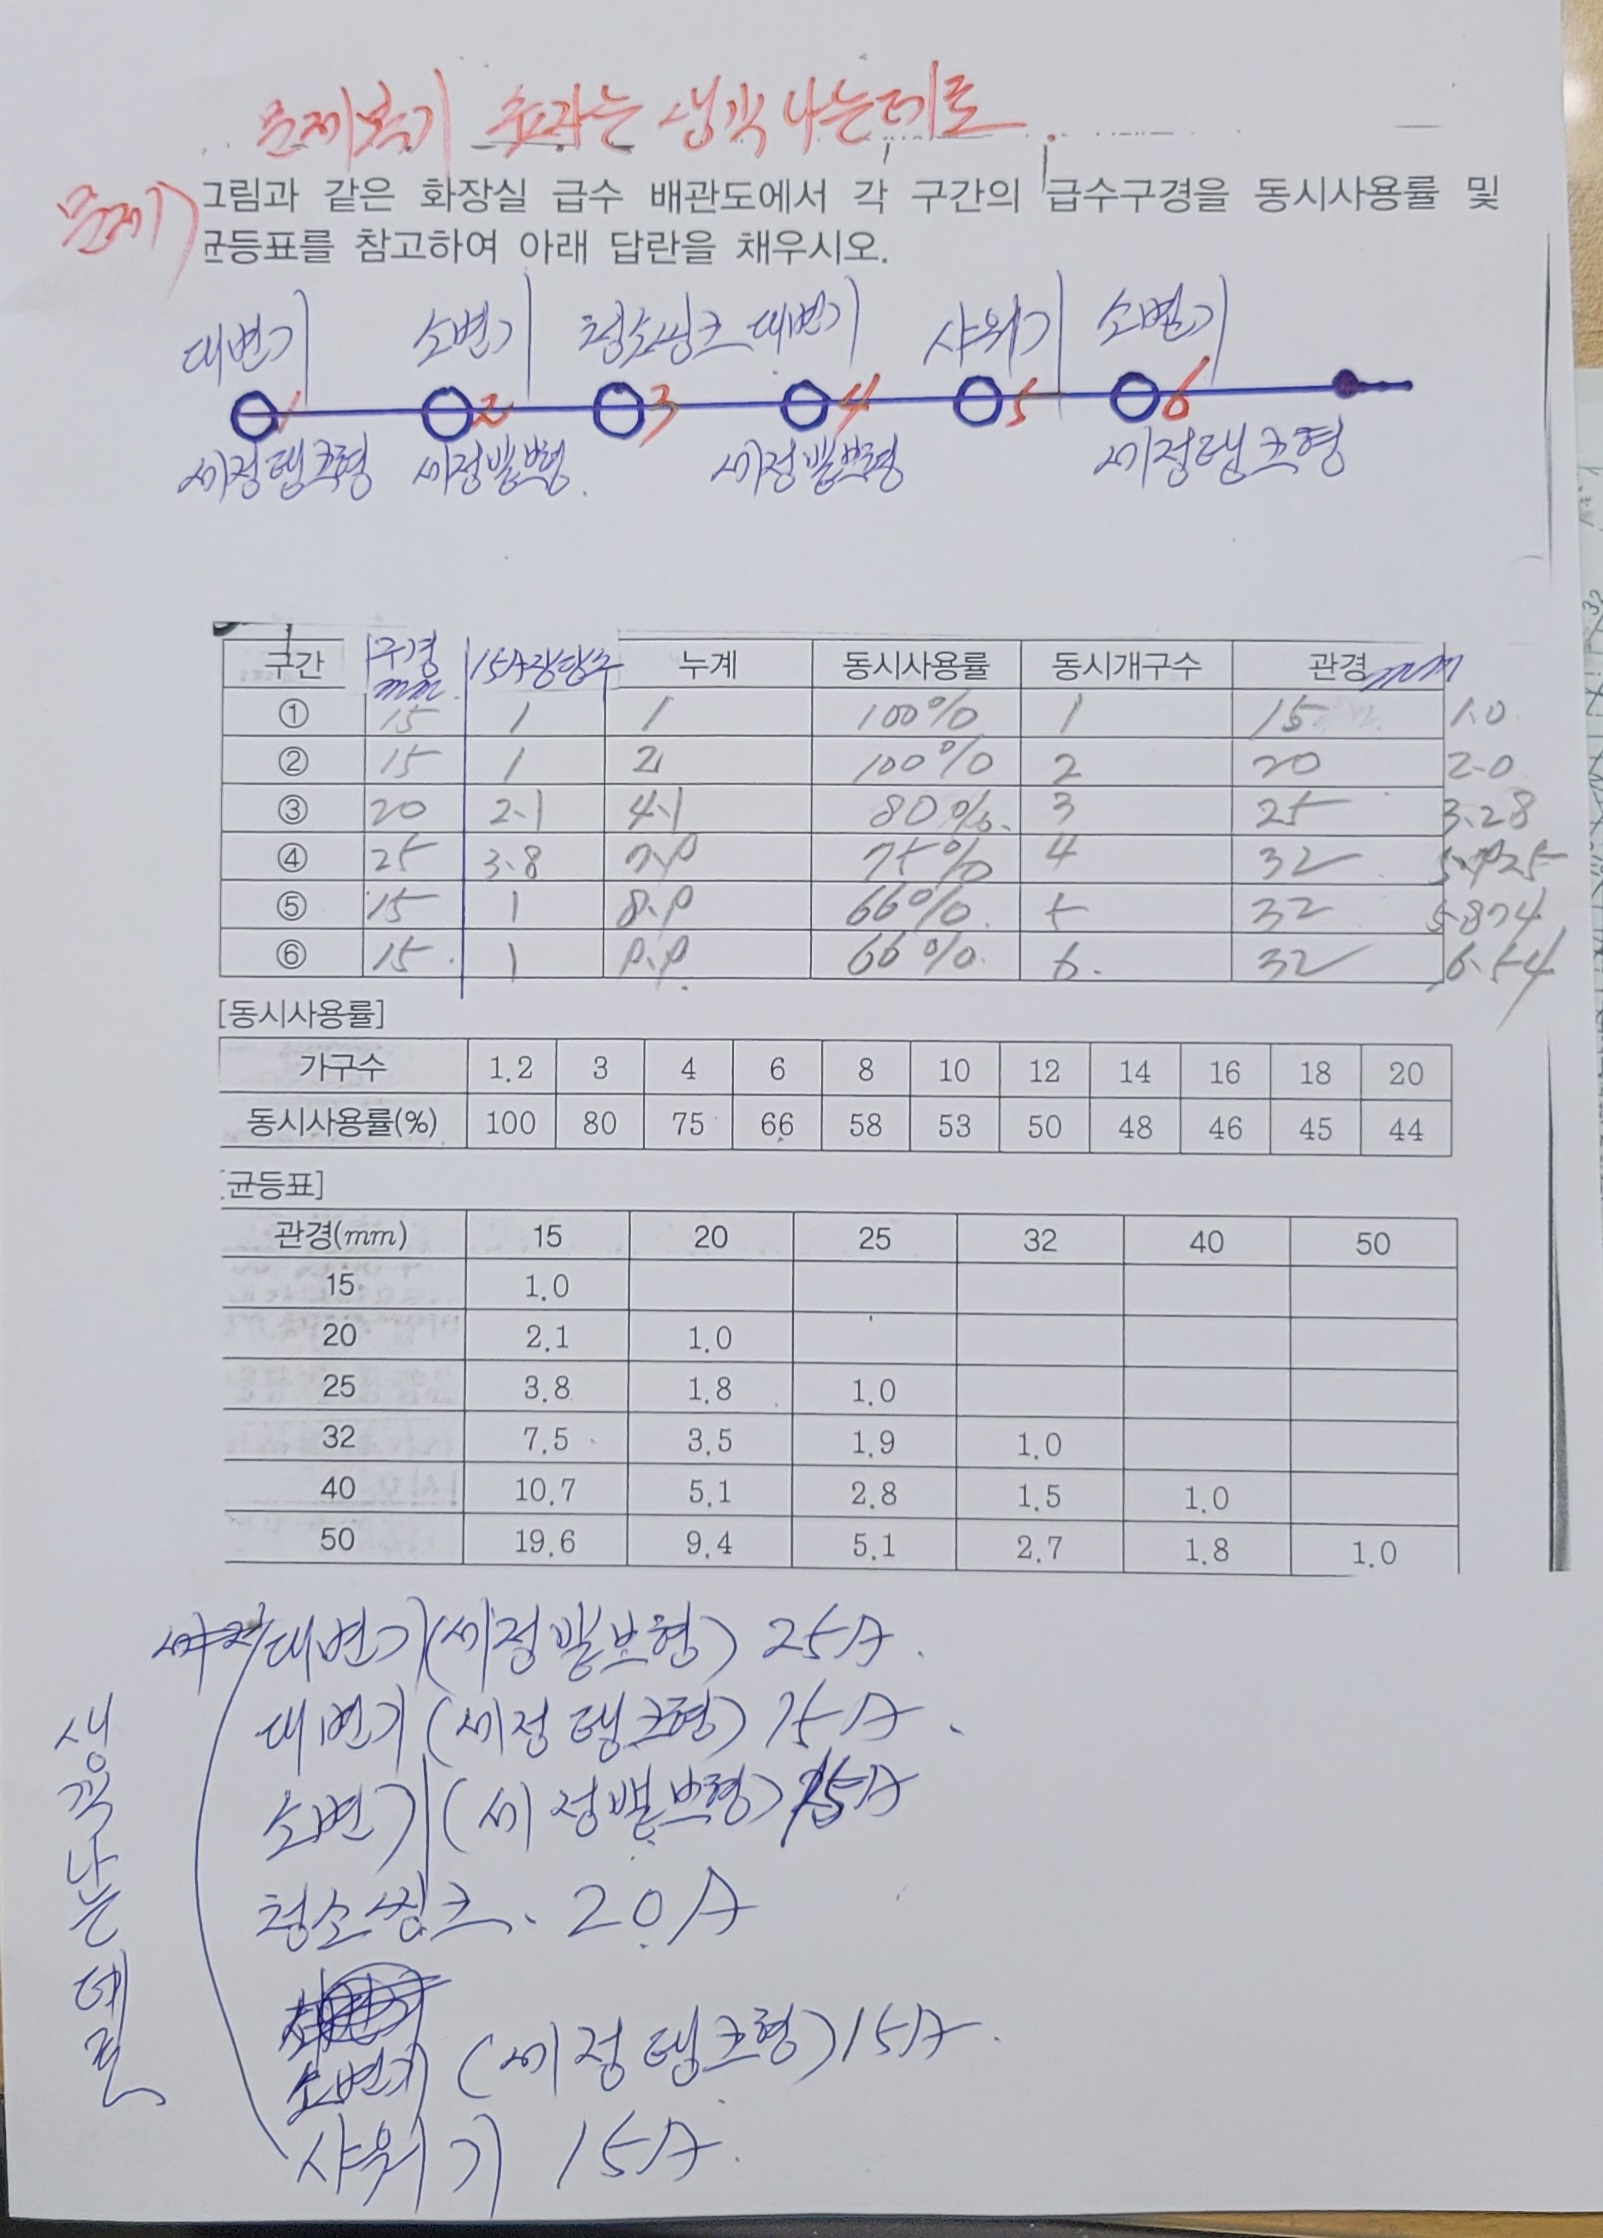 문제복기 효과는 생각나는데로
문제1) 그림과 같은 화장실 급수 배관도에서 각 구간의 급수구경을 동시사용률 및
균등표를 참고하여 아래 답란을 채우시오.
대변기 소변기 청소씽크 대변기 샤워기 소변기
1 2 3 4 5 6
세정탱크형 세정밸브형 세정밸브형 세정탱크형
구간 구경 mm 15A상당수 누계 동시사용률 동시개구수 관경 mm
① 15 1 1 100% 1 15 1.0
② 15 1 2 100% 2 20 2.0
③ 20 2.1 4.1 80% 3 25 3.28
④ 25 3.8 7.9 75% 4 32 5.925
⑤ 15 1 8.9 66% 5 32 5.874
⑥ 15 1 9.9 66% 6 32 6.54
[동시사용률]
가구수 1.2 3 4 6 8 10 12 14 16 18 20
동시사용률(%) 100 80 75 66 58 53 50 48 46 45 44
균등표]
관경(mm) 15 20 25 32 40 50
15 1.0
20 2.1 1.0
25 3.8 1.8 1.0
32 7.5 3.5 1.9 1.0
40 10.7 5.1 2.8 1.5 1.0
50 19.6 9.4 5.1 2.7 1.8 1.0
대변기(세정밸브형) 25A.
대변기(세정탱크형) 15A.
소변기(세정밸브형) 15A
청소씽크. 20A
소변기 (세정탱크형) 15A.
샤워기 15A.
생각나는데로